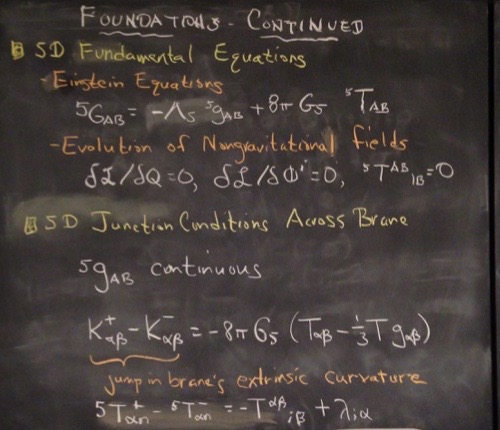 FOUNDATIONS - CONTINUED
5D Fundamental Equations
- Einstein Equations
⁵G_AB = -Λ₅ ⁵g_AB + 8π G₅ ⁵T_AB
- Evolution of Nongravitational fields
δℒ/δQ = 0, δℒ/δΦⁱ = 0, ⁵T^AB_|B = 0
5D Junction Conditions Across Brane
⁵g_AB continuous
K⁺_αβ - K⁻_αβ = -8π G₅ (T_αβ - ⅓ T g_αβ)
jump in brane's extrinsic curvature
⁵T⁺_αn - ⁵T⁻_αn = -T^αβ_;β + λ_;α